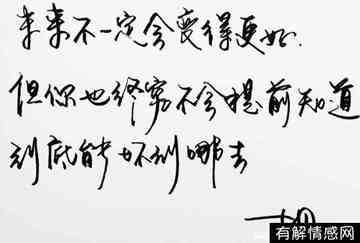 未来不一定会变得更好.
但你也终究不会提前知道
到底能坏到哪去
有解情感网